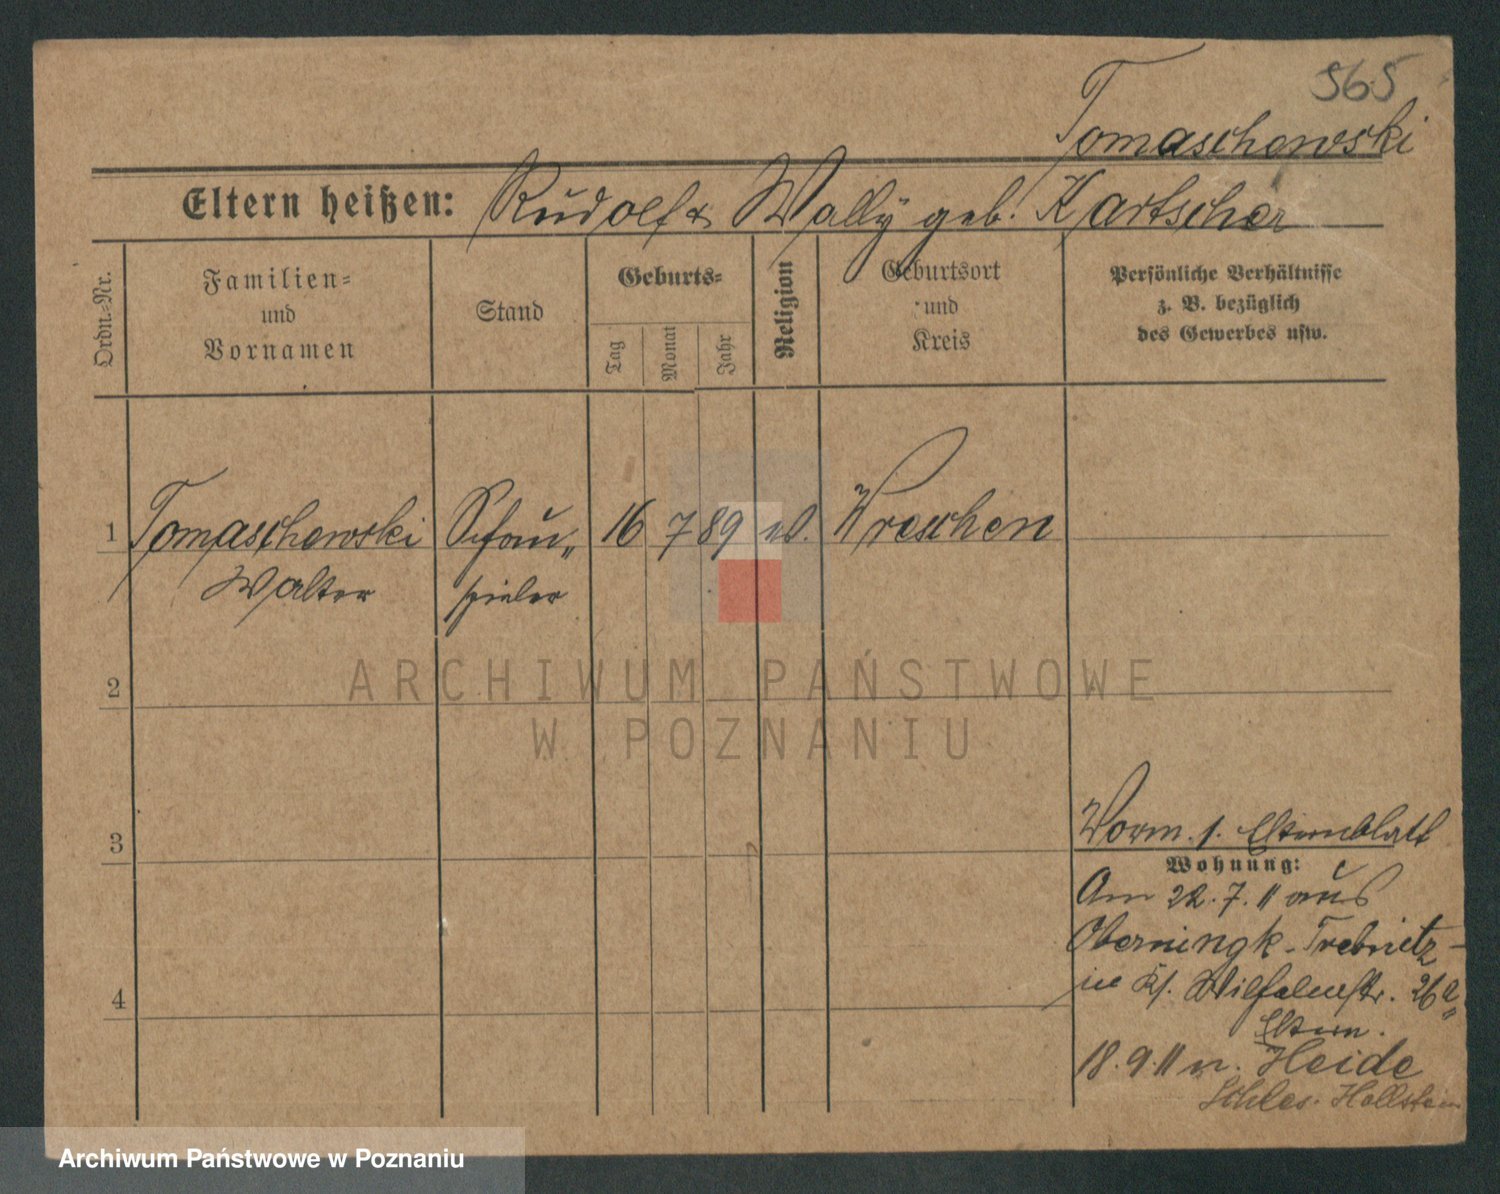 565
Tomaschewski
Eltern heißen: Rudolf & Wally geb. Kartscher
Ordn.-Nr.
Familien-
und
Vornamen
Stand
Geburts-
Tag
Monat
Jahr
Religion
Geburtsort
und
Kreis
Persönliche Verhältnisse
z. B. bezüglich
des Gewerbes usw.
1 Tomaschewski Schau- 16 7 89 Wreschen
Walter spieler
2
3
4
Vorm. s. Elternblatt
Wohnung:
Am 22.7.11 aus
Oberningk - Trebnitz -
in Wilhelmstr. 26a
Eltern.
18.9.11 n. Heide
Schles. Hollstein
ARCHIWUM PAŃSTWOWE
W POZNANIU
Archiwum Państwowe w Poznaniu